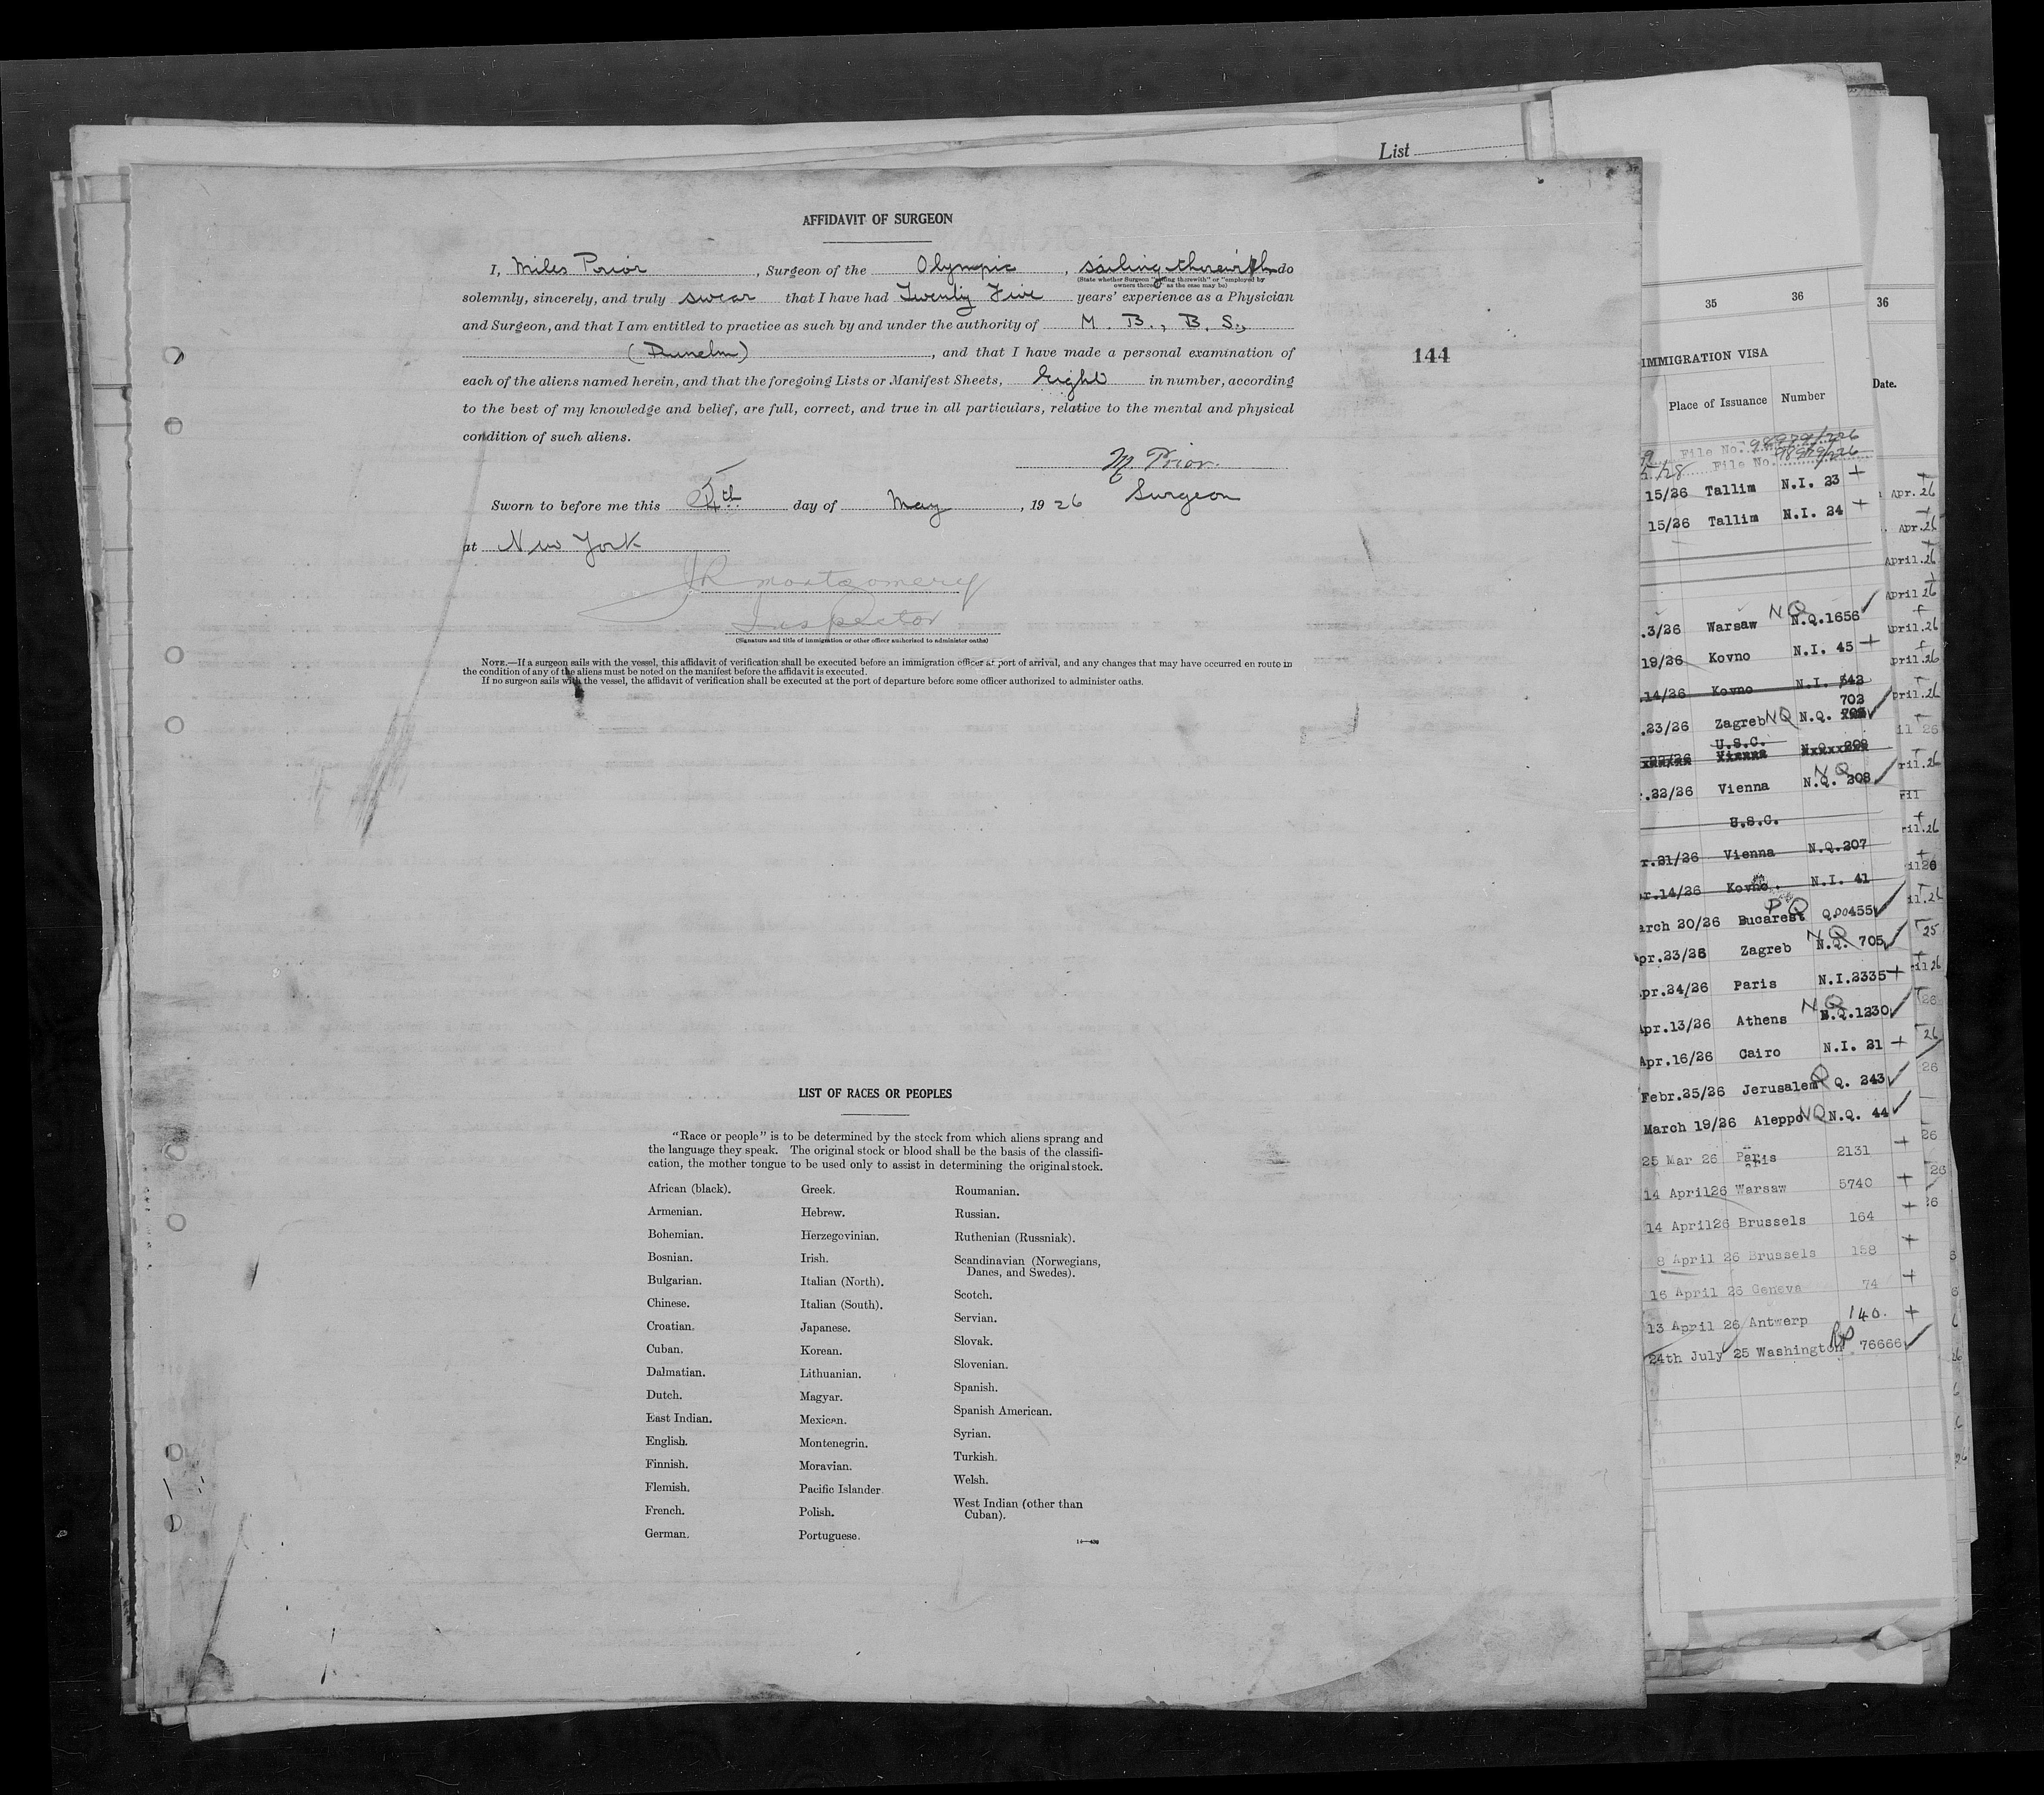 List
AFFIDAVIT OF SURGEON
I, Miles Prior, Surgeon of the Olympic, sailing therewith do
(State whether Surgeon "sailing therewith" or "employed by
owners thereof," as the case may be)
solemnly, sincerely, and truly swear that I have had Twenty Five years' experience as a Physician
and Surgeon, and that I am entitled to practice as such by and under the authority of M. B., B. S.,
(Dunelm), and that I have made a personal examination of
each of the aliens named herein, and that the foregoing Lists or Manifest Sheets, Eight in number, according
to the best of my knowledge and belief, are full, correct, and true in all particulars, relative to the mental and physical
condition of such aliens.
144
M Prior.
Surgeon
Sworn to before me this 4th day of May, 1926
at New York
JR Montgomery
Inspector
(Signature and title of immigration or other officer authorized to administer oaths)
NOTE.—If a surgeon sails with the vessel, this affidavit of verification shall be executed before an immigration officer at port of arrival, and any changes that may have occurred en route in
the condition of any of the aliens must be noted on the manifest before the affidavit is executed.
If no surgeon sails with the vessel, the affidavit of verification shall be executed at the port of departure before some officer authorized to administer oaths.
LIST OF RACES OR PEOPLES
"Race or people" is to be determined by the stock from which aliens sprang and
the language they speak. The original stock or blood shall be the basis of the classifi-
cation, the mother tongue to be used only to assist in determining the original stock.
African (black).
Armenian.
Bohemian.
Bosnian.
Bulgarian.
Chinese.
Croatian.
Cuban.
Dalmatian.
Dutch.
East Indian.
English.
Finnish.
Flemish.
French.
German.
Greek.
Hebrew.
Herzegovinian.
Irish.
Italian (North).
Italian (South).
Japanese.
Korean.
Lithuanian.
Magyar.
Mexican.
Montenegrin.
Moravian.
Pacific Islander.
Polish.
Portuguese.
Roumanian.
Russian.
Ruthenian (Russniak).
Scandinavian (Norwegians,
Danes, and Swedes).
Scotch.
Servian.
Slovak.
Slovenian.
Spanish.
Spanish American.
Syrian.
Turkish.
Welsh.
West Indian (other than
Cuban).
35 36 36
IMMIGRATION VISA
Place of Issuance Number Date.
File No. 98979/226
File No. 98979/226
15/26 Tallim N.I. 23 +
15/26 Tallim N.I. 24 +
.3/26 Warsaw NQ N.Q.1656 ✓
19/26 Kovno N.I. 45 +
.14/26 Kovno N.I. 542
702
.23/26 Zagreb NQ N.Q. ✓
U.S.C.
Vienna
.22/26 Vienna NQ N.Q. 208 ✓
U.S.C.
r.21/26 Vienna N.Q.207
r.14/26 Kovno. N.I. 41
arch 20/26 Bucarest PQ Q.00455 ✓
pr.23/26 Zagreb NQ N.Q. 705 ✓
pr.24/26 Paris N.I.2335 +
Apr.13/26 Athens NQ N.Q.1230 ✓
Apr.16/26 Cairo N.I. 21 +
Febr.25/26 Jerusalem Q Q. 243 ✓
March 19/26 Aleppo NQ N.Q. 44 ✓
25 Mar 26 Paris 2131 +
14 April26 Warsaw 5740 +
14 April26 Brussels 164 +
8 April 26 Brussels 158 +
16 April 26 Geneva 74 +
13 April 26 Antwerp 140. +
24th July 25 Washington RP 76666 ✓